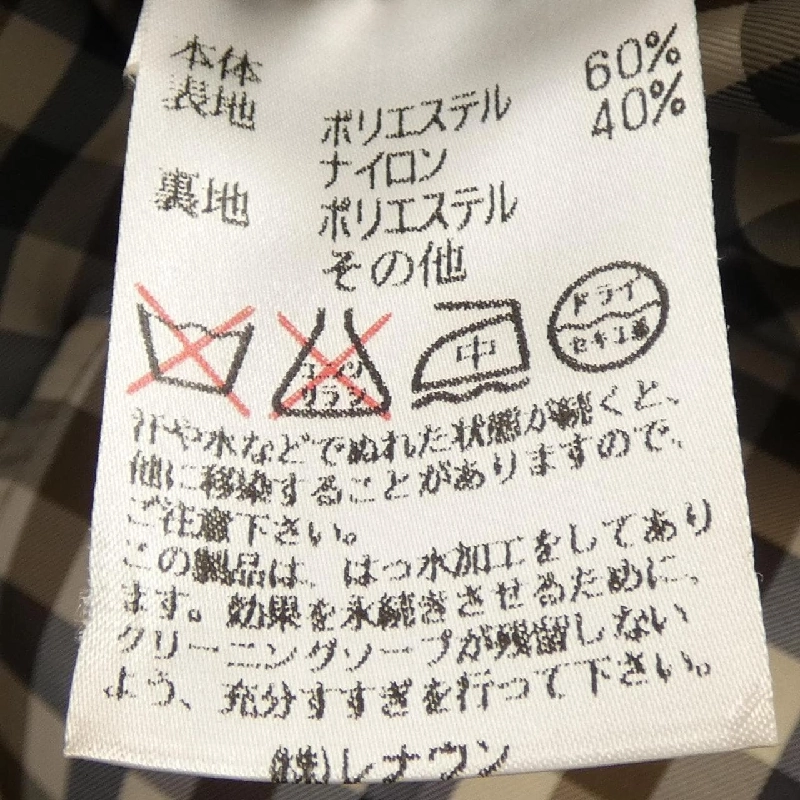 本体
表地 ポリエステル 60%
ナイロン 40%
裏地 ポリエステル
その他
エンソ
サラシ
中
ドライ
セキユ系
汗や水などでぬれた状態が続くと、
他に移染することがありますので、
ご注意下さい。
この製品は、はっ水加工をしてあり
ます。効果を永続きさせるために、
クリーニングソープが残留しない
よう、充分すすぎを行って下さい。
(株)レナウン